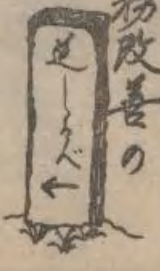 改善の
道しるべ
←